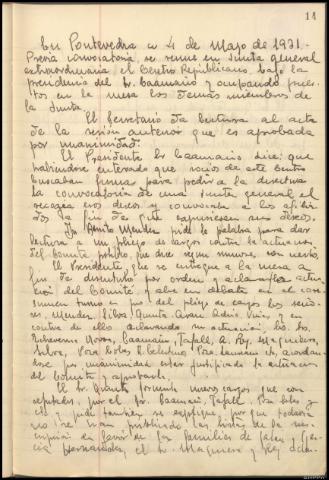 11
En Pontevedra a 4 de Mayo de 1931.
Previa convocatoria, se reune en Junta general
extraordinaria el Centro Republicano, bajo la
presidencia del Sr. Caamaño y ocupando pues-
tos en la mesa los demas miembros de
la Junta.
El Secretario da lectura al acta
de la sesión anterior que es aprobada
por unanimidad.
El Presidente Sr. Caamaño dice que
habiendose enterado que socios de este Centro
buscaban firmas para pedir a la directiva
la convocatoria de una junta general, el
recogía esos deseos y convocaba a los afilia-
dos a fin de que expusiesen sus deseos.
Benito Mendez pide la palabra para dar
lectura a un pliego de cargos contra la actuación
del Comité político, que dice
El Presidente que se entregue a la mesa a
fin de discutirlo por orden y aclararles actua-
ción del Comité; abre un debate en el que con-
sumen turno en pro del pliego de cargos los seño-
res, Mendez, Silva, Quinta, y en
contra de ello aclarando su actuación, los Srs.
Caamaño, Tafall, A. Rey,
Poza, acordan-
dose por unanimidad estar justificada la actuación
del Comité y aprobarla.
El Sr. Quinta formula nuevos cargos que son
por el Sr. Caamaño, Tafall
y pide tambien se explique, por que todavia
no se han publicado las listas de la sus-
cripción en favor de las familias de Galan y Gar-
cia Hernandez, el Sr.